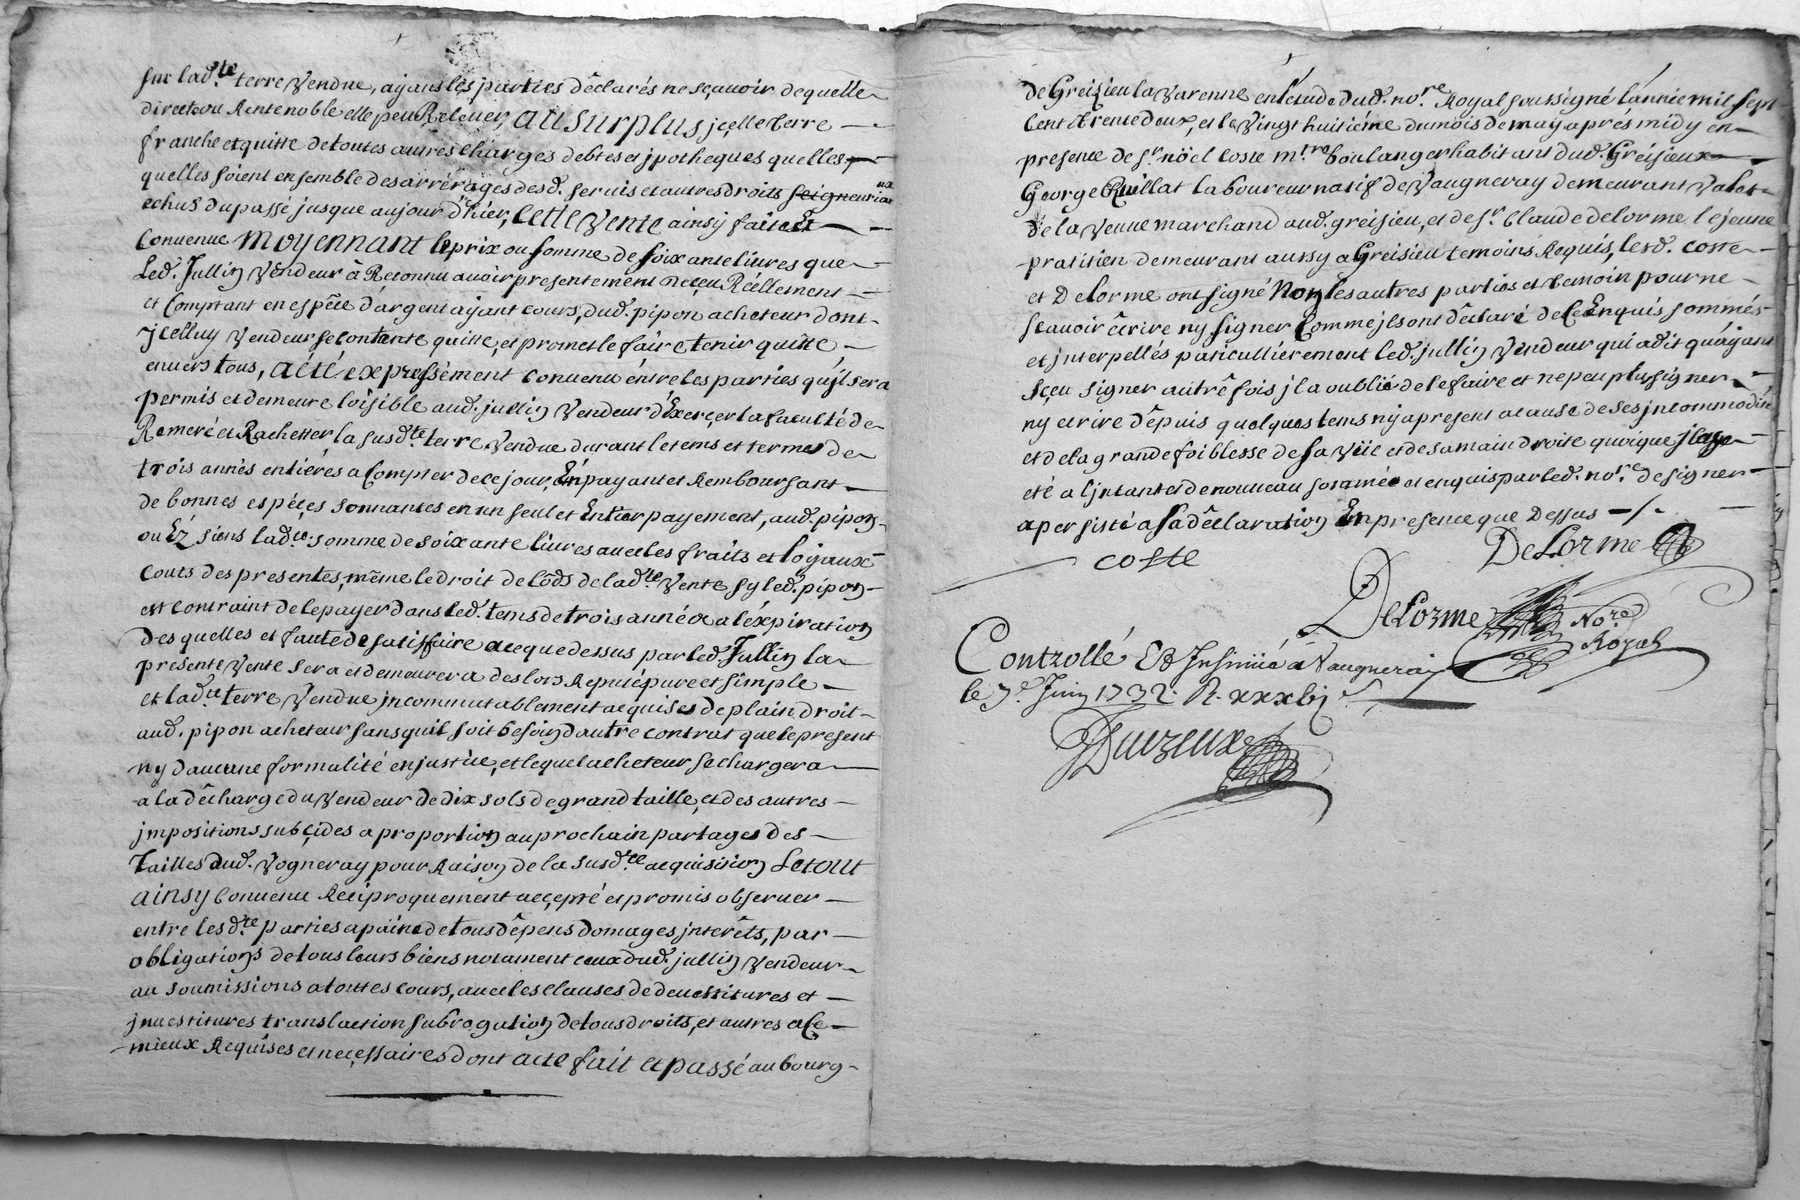 sur lad.te terre Vendue, ayans les parties déclarés ne sçavoir de quelle
directe ou Rente noble elle peu Relever, au surplus jcelle terre
franche et quitte de toutes autres charges debtes et jpotheques quelles
quelles soient ensemble des arrérages desd. servis et autres droits seigneuriaux
echus du passé jusque aujour d'hier, Cette Vente ainsy faite et
Convenue moyennant le prix ou somme de soixante livres que
Led. Jullin Vendeur à Reconnu avoir presentement Receu Réellement
et Comptant en espéce d'argent ayant cours, dud. pipon acheteur dont
jcelluy Vendeur se contente quitte, et promet le faire tenir quitte
envers tous, a été expressément convenu entre les parties qu'il sera
permis et demeure loisible aud. jullin Vendeur d'Exerçer la faculté de
Remeré et Rachetter la susd.te terre Vendue durant le tems et terme de
trois annés entiéres a Compter de ce jour, En payant et Remboursant
de bonnes espéçes sonnantes en un seul et Entier payement, aud. pipon
ou Ez siens lad.te somme de soixante livres avec les fraits et loyaux
couts des presentes, même le droit de lôds de lad.te Vente sy led. pipon
est contraint de le payer dans led. tems de trois année a l'éxpiration
des quelles et faute de satisffaire a ce que dessus par led. Jullin la
presente Vente sera et demeurera des lors Reputé pure et simple
et lad.te terre Vendue jncommutablement acquises de plain droit
aud. pipon acheteur sans quil soit besoin d'autre contrat que le present
ny d'aucune formalité en justice, et lequel acheteur se chargera
a la décharge du Vendeur de dix sols de grand taille, et des autres
jmpositions subçides a proportion au prochain partages des
Tailles dud. Vogneray pour Raison de la susd.te acquisition Le tout
ainsy Convenu Reciproquement accepté et promis observer
entre lesd.te parties a paine de tous dêpens domages jnterêts, par
obligations de tous leurs biens notament ceux dud. jullin Vendeur
au soumissions a toutes cours, avec les clauses de devestitures et
jnvestitures translaction subrogation de tous droits, et autres a ce
mieux Requises et neçessaires dont acte fait et passé au bourg
de Greizieu la Varenne en l'etude dud. no.re Royal soussigné l'année mil sept
Cent trente deux, et le Vingt huitiéme du mois de may aprés midy en
presence de s.r nöel Coste m.tre boulanger habitant dud. Greisieux
George Quillat laboureur natif de Vaugneray demeurant Valet
de la Veuve marchand aud. greisieu, et de s.r Claude delorme le jeune
pratitien demeurant aussy a Greisieu temoins Requis, lesd. Coste
et Delorme ont signé Non les autres parties et temoin pour ne
scavoir êcrire ny signer Comme jls ont déclaré de ce Enquis sommés
et jnterpellés particulliérement led. jullin Vendeur qui a dit qu'ayant
sçeu signer autrêfois jl a oublié de le faire et ne peu plus signer
ny ecrire dêpuis quelques tems ny a present a cause de ses jncommodité
et de la grande foiblesse de sa Vüe et de sa main droite quoique jl aye
eté a l'jntant et de nouveau sommé et enquis par led. no.re de signer
a persisté a sa dêclaration En presence que Dessus
coste
DeLorme
DeLorme No.re
Royal
Controllé Et Insinué à Vaugneray
le 7.e Juin 1732. R. xxxbj s
Duvzeux